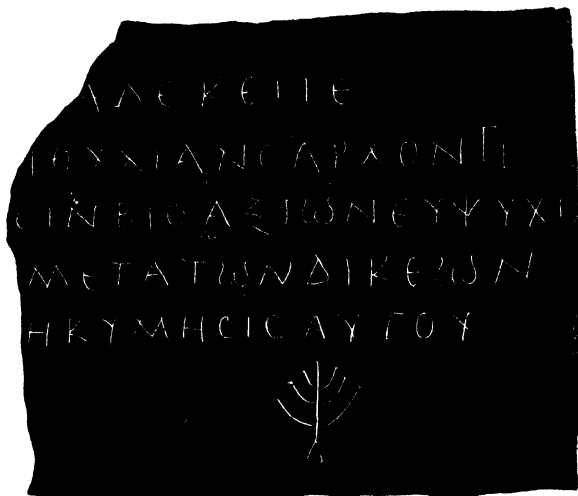 ΑΔΕΚΕΙΤΕ
ΙΟΥΛΙΑΝCΑΡΧΟΝΤΙ
CΙΝΒΙΟΑΞΙΩΝΕΥΨΥΧΙ
ΜΕΤΑΤΩΝΔΙΚΕΩΝ
ΗΚΥΜΗCΙCΑΥΤΟΥ